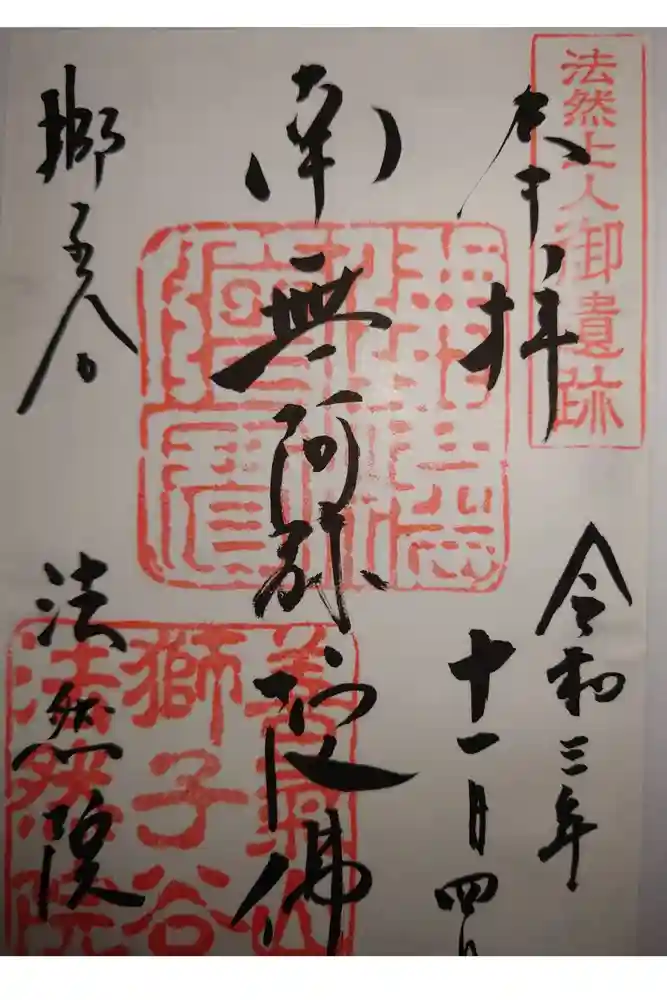 法然上人御遺跡
奉拝
令和三年
十一月四日
南無阿弥陀佛
獅子谷
法然院
善氣山
獅子谷
法然院